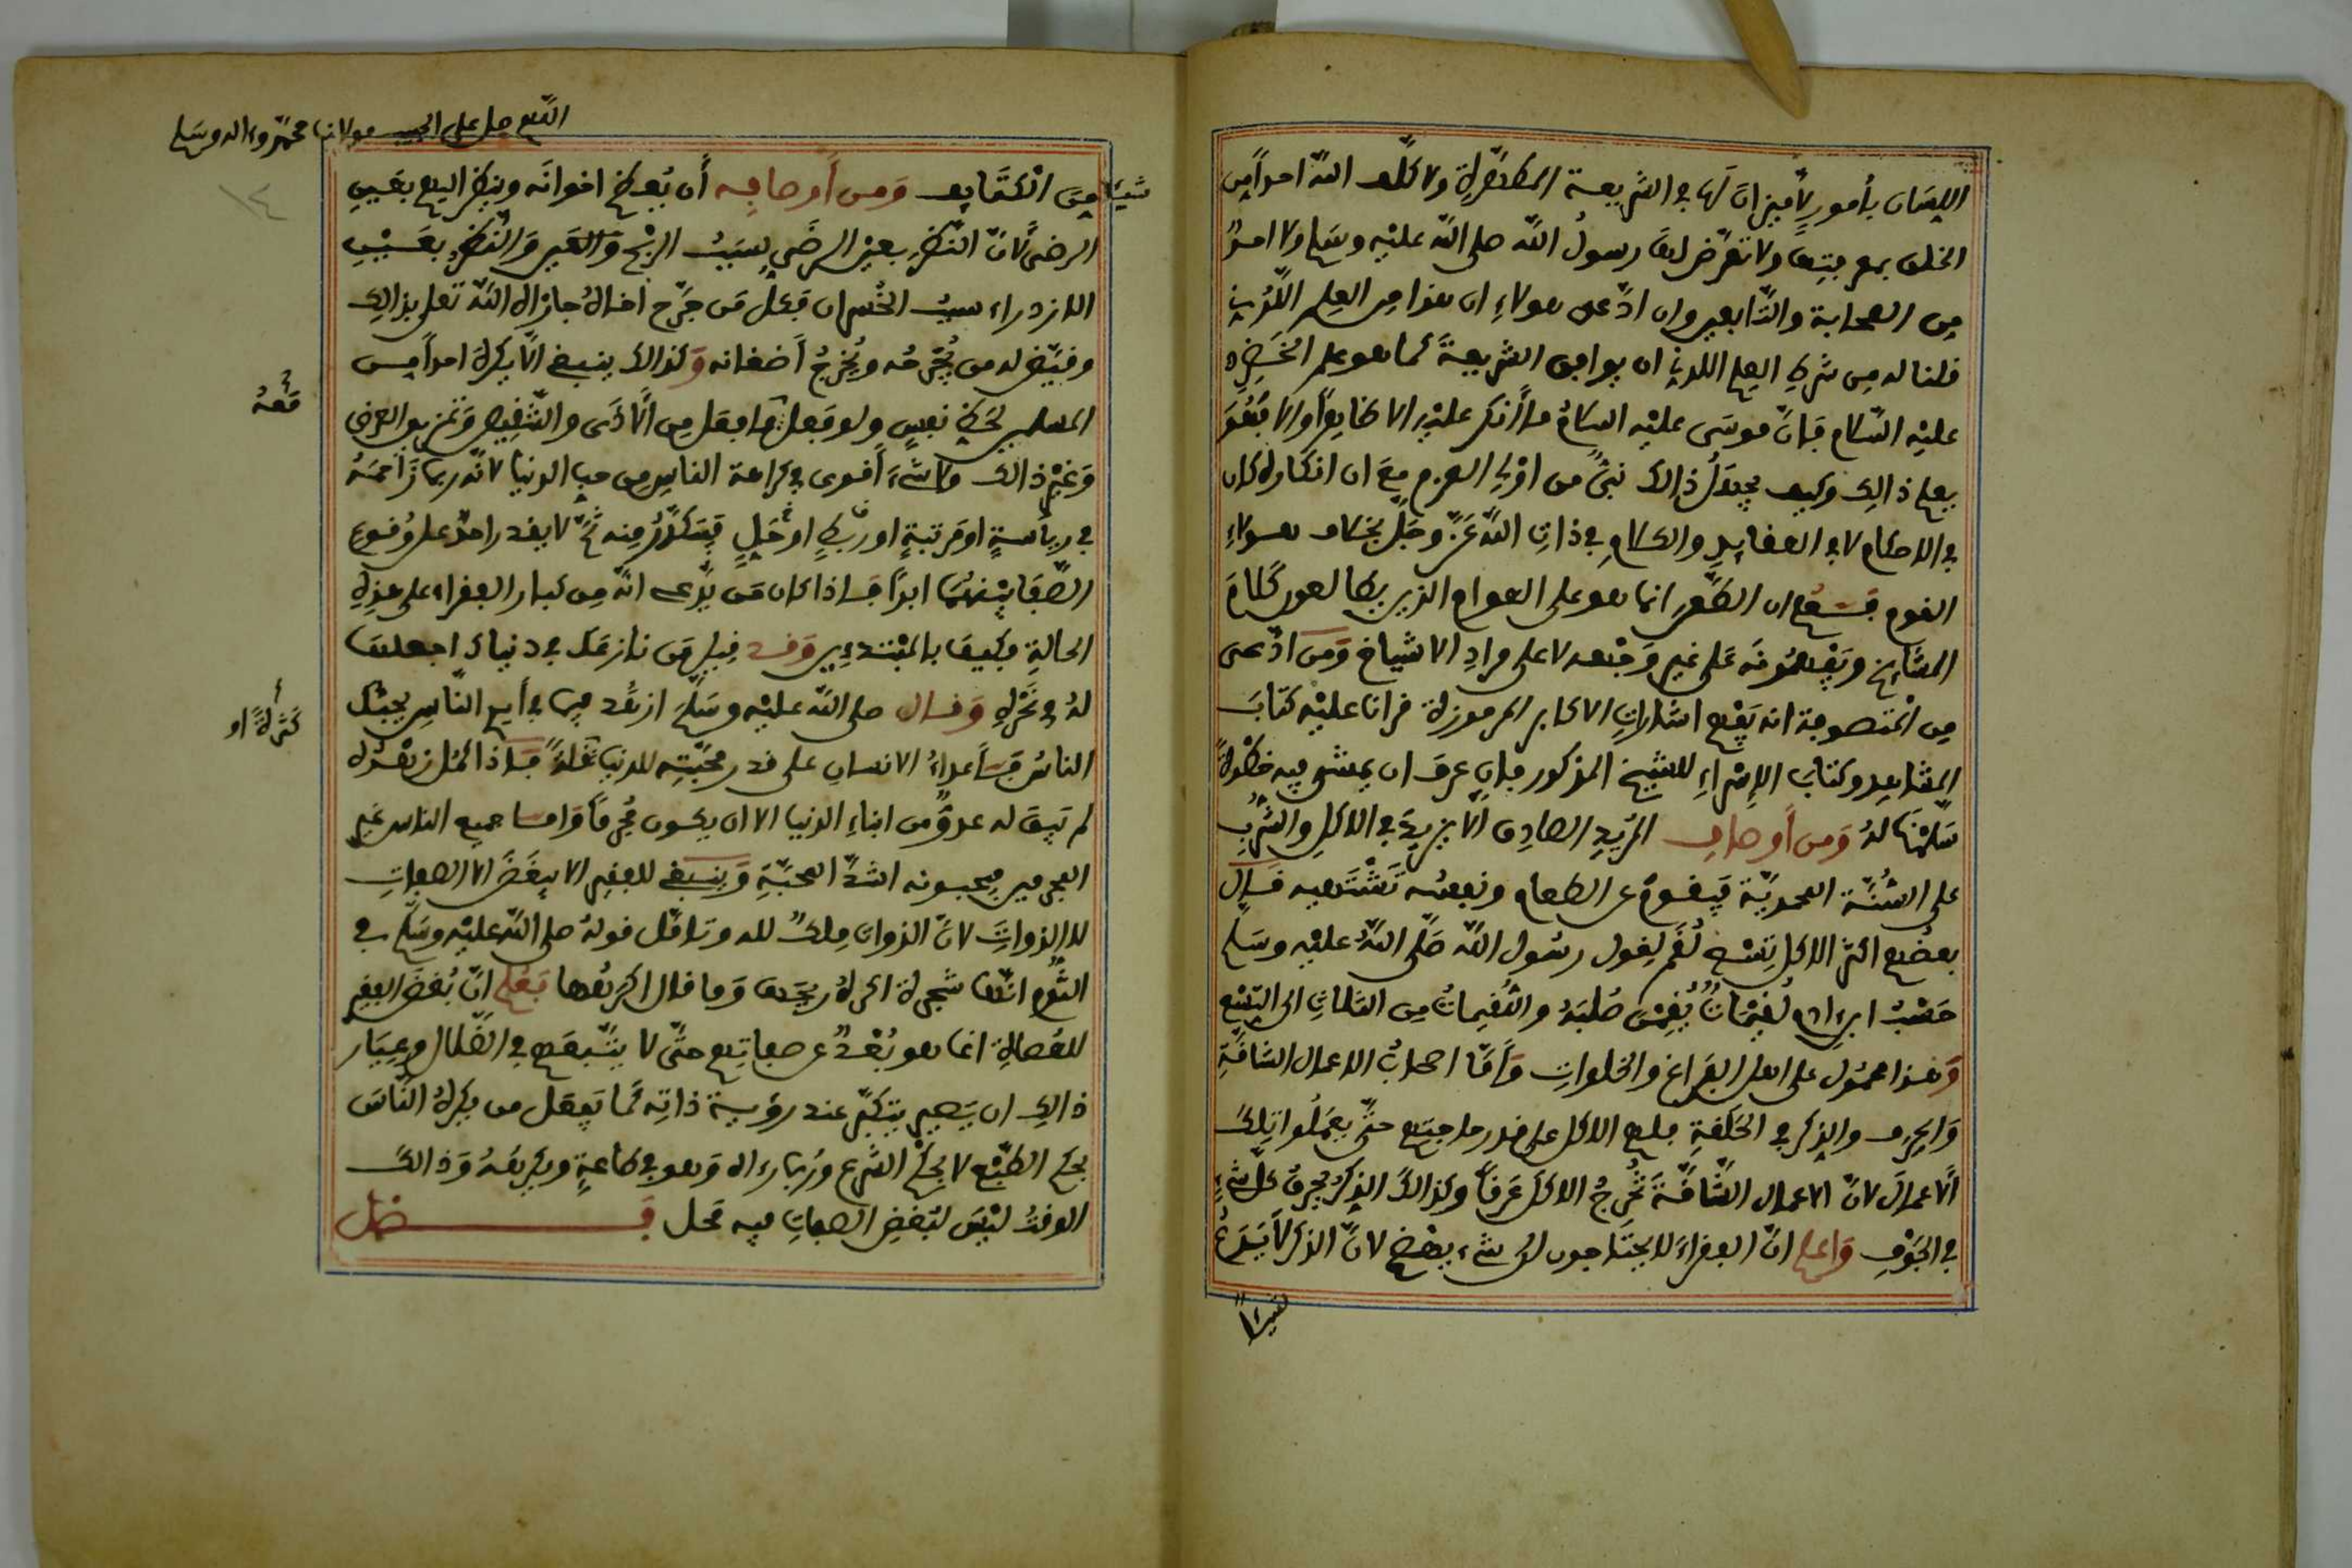 اللسان بأمور لا ميزان لها في الشريعة المطهرة ولا كلف الله احدا من
الخلق بمعرفتها ولا تعرض لها رسول الله صلى الله عليه وسلم ولا احد
من الصحابة والتابعين وان ادعى هولاء ان هذا من العلم اللدني
قلنا له من شرط العلم اللدني ان يوافق الشريعة كما هو علم الخضر
عليه السلام فإن موسى عليه السلام ما أنكر عليه الا
بعلم ذالك وكيف يجهل ذالك نبي من اولى العزم مع ان انكاره كان
في الاحكام لا في العقايد والكلام في ذات الله عز وجل بخلاف هولاء
القوم فعلم ان الضرر انما هو على العوام الذين يطالعون كلام
المشايخ ويفهمونه على غير وجهه لا على مراد الاشياخ ومن ادعى
من المتصوفة انه يفهم اشارات الاكابر المرموزة قرانا عليه كتاب
المشاهد وكتاب الإسراء للشيخ المذكور فإن عرف ان يمشي فيه خطوة
سلمنا له ومن أوصاف المريد الصادق ألا يزيد في الاكل والشرب
على السنة المحمدية فيقوم عن الطعام ونفسه تشتهيه قال
بعضهم اكثر الاكل تسع لقم لقول رسول الله صلى الله عليه وسلم
حسب ابن ادم لقيمات يقمن صلبه واللقيمات من الثلاث الى التسع
وهذا محمول على اهل الفراغ والخلوات وأما اصحاب الاعمال الشاقة
والحرف والذكر في الحلقة فلهم الاكل على قدر حاجتهم حتى يعملوا تلك
ألاعمال لان الاعمال الشاقة تخرج الاكل عرقا وكذالك الذكر يحرق كل شيء
في الجوف واعلم ان الفقراء لا يحتاجون لى شيء يهضم لان الذكر لا يدع
شيئا
اللهم صل على الحبيب مولانا محمد وءاله وسلم
١٤
شيئا من الكتايف ومن أوصافه أن يعظم اخوانه وينظر اليهم بعين
الرضى لان النظر بعين الرضى سبب الربح والخير والنظر بعين
الازدراء سبب الخسران فعل من جرح اخاه جازاه الله تعلى بذالك
وقيض له من يجرحه ويخرج أضغانه وكذالك ينبغي الا يكره احدا من
المسلمين لحظ نفس ولو فعل معه ما فعل من الأذى والتنقيص وتمزيق العرض
وغير ذالك ولا شيء أقوى في كراهة الناس من حب الدنيا لانه ربما زاحمه
في رياسة او مرتبة او رزق او عمل فيتكدر منه ثم لا يقدر احد على وقوع
الصفا بينهما ابدا فاذا كان من يدعى انه من كبار الفقراء على هذه
الحالة فكيف بالمبتدءين وقد قيل من نازعك في دنياك اجعلها
له في نحره وقال صلى الله عليه وسلم ازهد فيما في أيد الناس يحبك
الناس فأعداء الانسان على قدر محبته للدنيا كثرة او قلة فاذا كمل زهده
لم يبق له عدو من ابناء الدنيا الا ان يكون مجرما واما جميع الناس غير
المجرمين فيحبونه اشد المحبة وينبغي للفقير الا يبغض الا الصفات
لا الذوات لان الذوات ملك لله وتامل قوله صلى الله عليه وسلم في
الثوم انها شجرة اكره ريحها وما قال اكرهها فعلم ان بغض الفقير
للعصاة انما هو بغض صفاتهم حتى لا يتبعهم في الضلال وعيار
ذالك ان يصير يتكبر عند رؤية ذاته كما يفعل من يكره الناس
بحكم الطبع لا بحكم الشرع وربما راه وهو في طاعة ويكرهه وذالك
الوقت ليس لبغض الصفات فيه محل فصل
معه
كثرة او